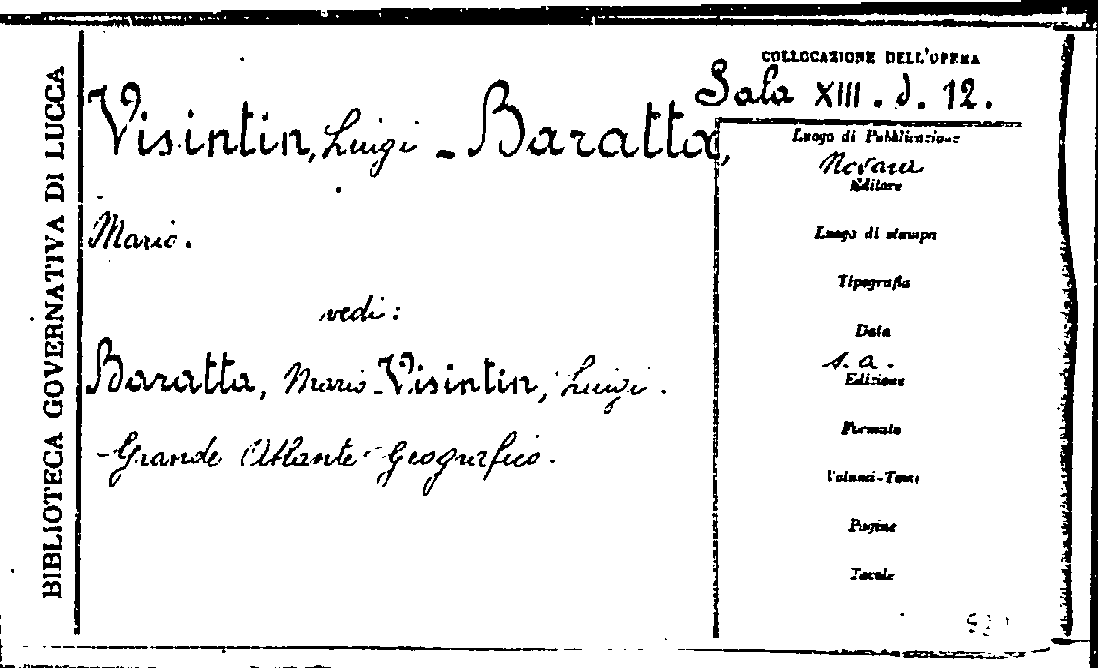 BIBLIOTECA GOVERNATIVA DI LUCCA
COLLOCAZIONE DELL'OPERA
Sala XIII. d. 12.
Visintin, Luigi - Baratta,
Mario.
vedi:
Baratta, Mario - Visintin, Luigi.
- Grande Atlante Geografico.
Luogo di Pubblicazione
Novara
Editore
Luogo di stampa
Tipografia
Data
s. a.
Edizione
Formato
Volumi-Tomi
Pagine
Tavole